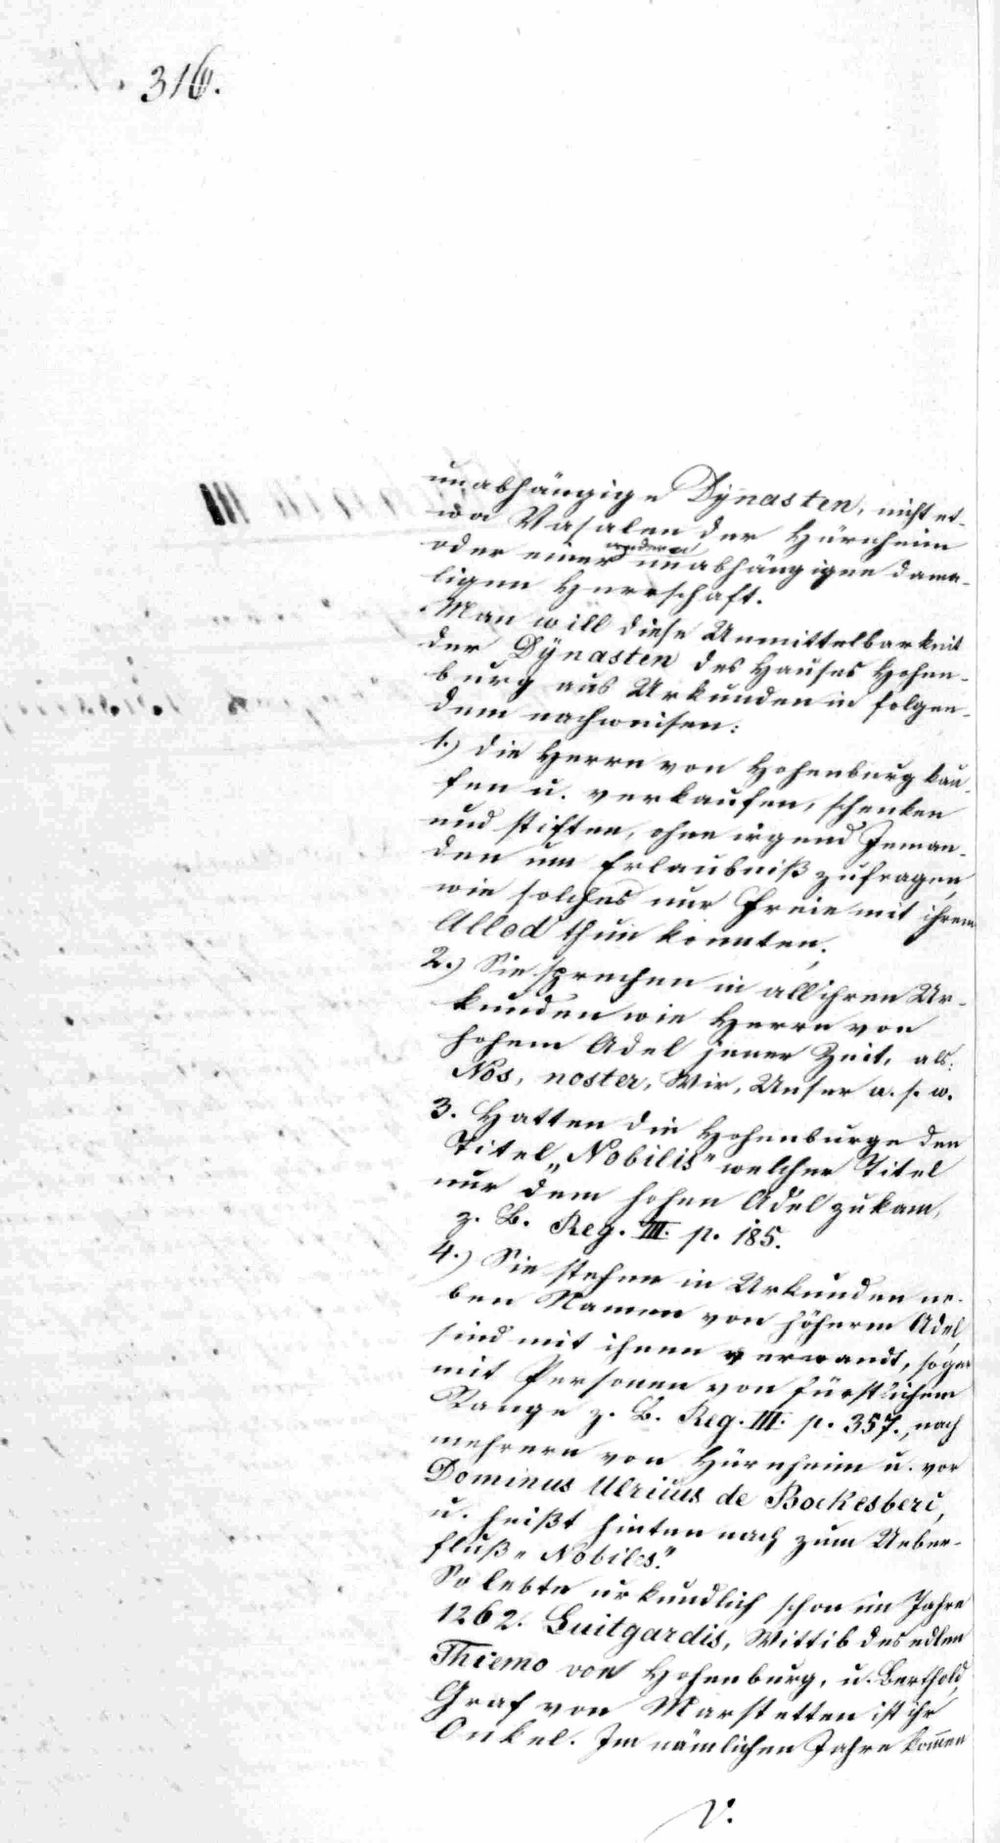 316.
unabhängige Dÿnasten, nicht et-
wa Vasalen der Hürnheim
oder einer andern unabhängigen dama-
ligen Herrschaft.
Man will diese Unmittelbarkeit
der Dÿnasten des Hauses Hohen-
burg aus Urkunden in folgen-
dem nachweisen:
1.) Die Herrn von Hohenburg kau-
fen u. verkaufen, schenken
und stiften, ohne irgend Jeman-
den um Erlaubniß zufragen,
wie solches nur Freie mit ihrem
Allod thun konnten.
2.) Sie sprechen in all ihren Ur-
kunden wie Herrn von
hohem Adel jener Zeit, als:
Nos, noster, Wir, Unser u. s. w.
3. Hatten die Hohenburge den
Titel „Nobilis" welcher Titel
nur dem hohen Adel zukam,
z. B. Reg. III. p. 185.
4.) Sie stehen in Urkunden ne-
ben Namen von höherm Adel,
sind mit ihnen verwandt, sogar
mit Personen von fürstlichem
Range z. B. Reg. III. p. 357., nach
mehrern von Hürnheim u. vor
Dominus Ulricus de Bockesberc,
u. heißt hinten nach zum Ueber-
fluß „Nobiles."
So lebte urkundlich schon im Jahre
1262. Luitgardis, Wittib des edlen
Thiemo von Hohenburg, u. Berthold,
Graf von Marstetten ist ihr
Onkel. Im nämlichen Jahre kom̄en
V.